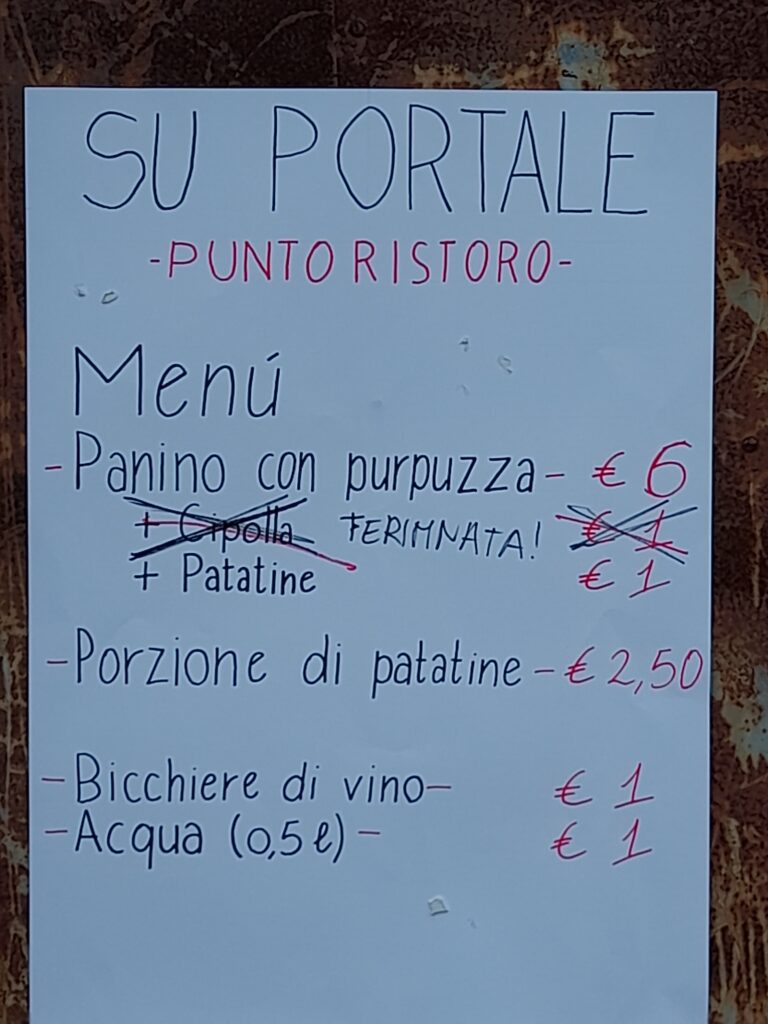 SU PORTALE
-PUNTO RISTORO-
Menú
-Panino con purpuzza- € 6
+ Cipolla TERIMNATA! € 1
+ Patatine € 1
-Porzione di patatine- € 2,50
-Bicchiere di vino- € 1
-Acqua (0,5 l)- € 1